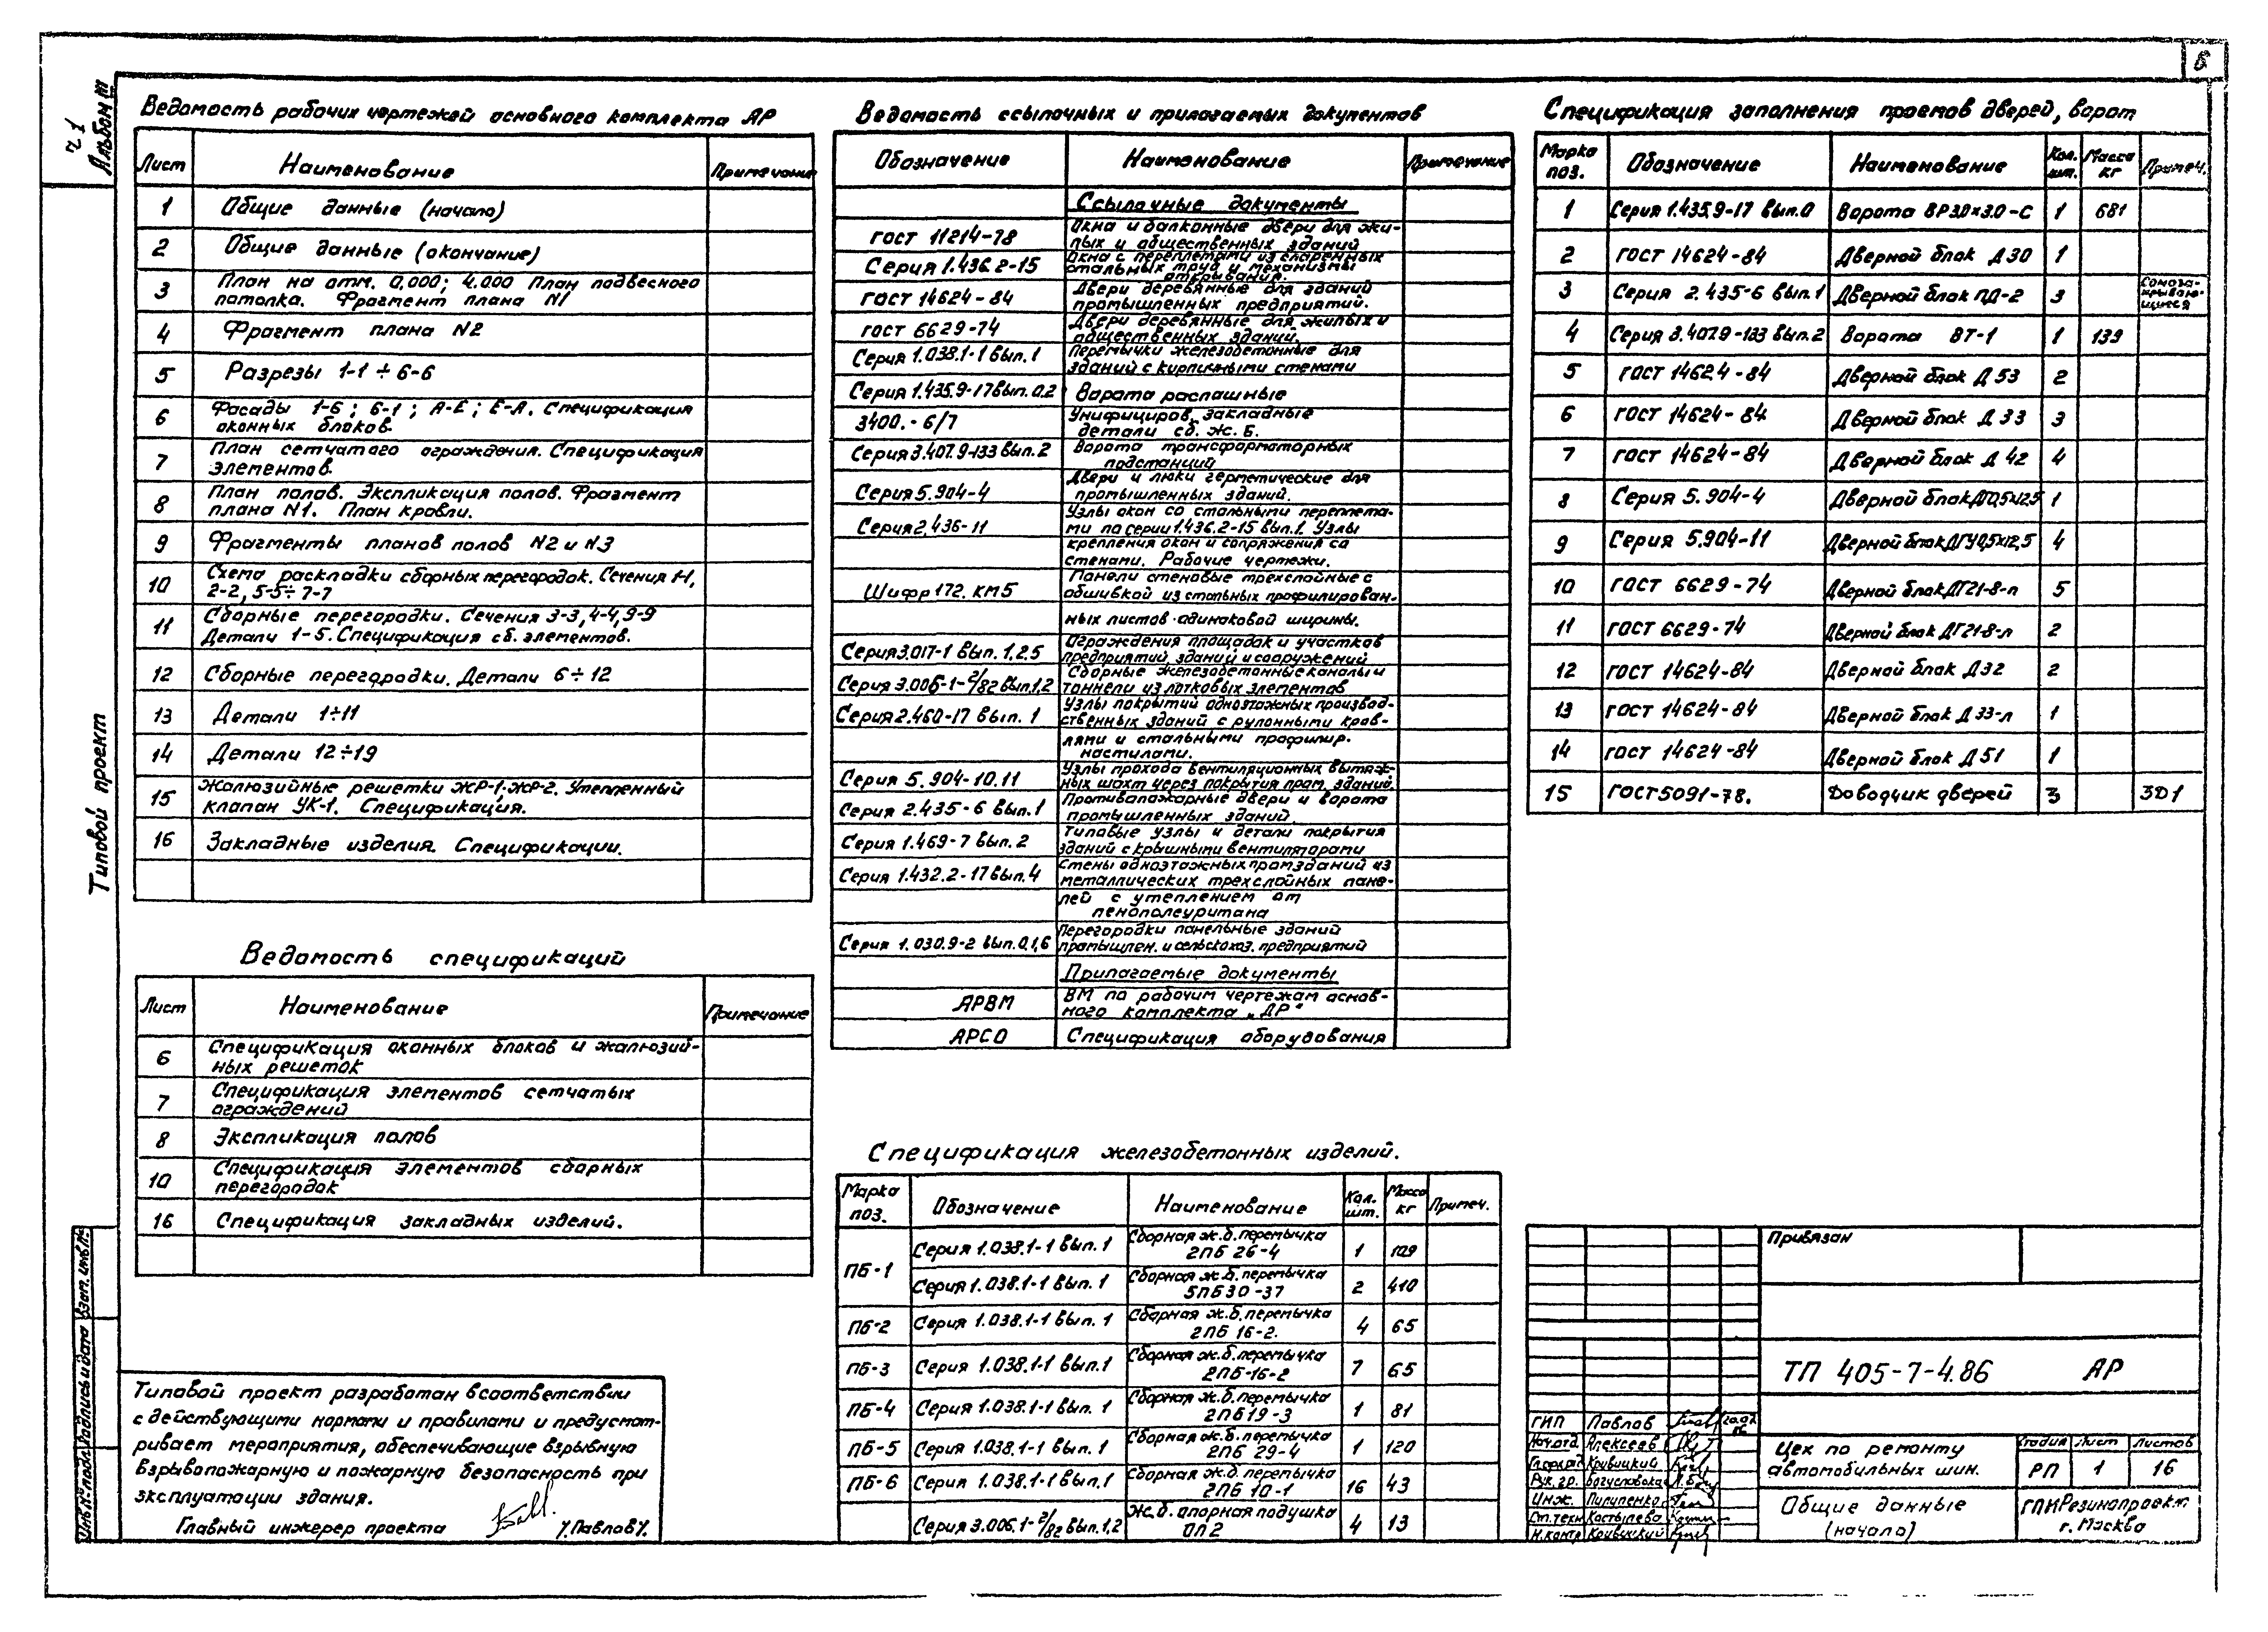 6
ч.1
Альбом III
Типовой проект
Ведомость рабочих чертежей основного комплекта АР
Лист Наименование Примечание
1 Общие данные (начало)
2 Общие данные (окончание)
3 План на отм. 0,000; 4.000 План подвесного
потолка. Фрагмент плана N1
4 Фрагмент плана N2
5 Разрезы 1-1 ÷ 6-6
6 Фасады 1-6; 6-1; А-Е; Е-А. Спецификация
оконных блоков.
7 План сетчатого ограждения. Спецификация
элементов.
8 План полов. Экспликация полов. Фрагмент
плана N1. План кровли.
9 Фрагменты планов полов N2 и N3
10 Схема раскладки сборных перегородок. Сечения 1-1,
2-2, 5-5÷7-7
11 Сборные перегородки. Сечения 3-3, 4-4, 9-9
Детали 1-5. Спецификация сб. элементов.
12 Сборные перегородки. Детали 6÷12
13 Детали 1÷11
14 Детали 12÷19
15 Жалюзийные решетки ЖР-1; ЖР-2. Утепленный
клапан УК-1. Спецификация.
16 Закладные изделия. Спецификации.
Ведомость спецификаций
Лист Наименование Примечание
6 Спецификация оконных блоков и жалюзий-
ных решеток
7 Спецификация элементов сетчатых
ограждений
8 Экспликация полов
10 Спецификация элементов сборных
перегородок
16 Спецификация закладных изделий.
Типовой проект разработан в соответствии
с действующими нормами и правилами и предусмат-
ривает мероприятия, обеспечивающие взрывную
взрывопожарную и пожарную безопасность при
эксплуатации здания.
Главный инженер проекта /Павлов/.
Инв.№ подл. Подпись и дата Взам. инв.№
Ведомость ссылочных и прилагаемых документов
Обозначение Наименование Примечание
Ссылочные документы
ГОСТ 11214-78 Окна и балконные двери для жи-
лых и общественных зданий
Серия 1.436.2-15 Окна с переплетами из спаренных
стальных труб и механизмы
открывания.
ГОСТ 14624-84 Двери деревянные для зданий
промышленных предприятий.
ГОСТ 6629-74 Двери деревянные для жилых и
общественных зданий.
Серия 1.038.1-1 вып.1 Перемычки железобетонные для
зданий с кирпичными стенами
Серия 1.435.9-17 вып.0.2 Ворота распашные
3400.-6/7 Унифициров. закладные
детали сб. ж. б.
Серия 3.407.9-133 вып.2 Ворота трансформаторных
подстанций
Серия 5.904-4 Двери и люки герметические для
промышленных зданий.
Серия 2.436-11 Узлы окон со стальными перепле­та-
ми по серии 1.436.2-15 вып.1. Узлы
крепления окон и сопряжения со
стенами. Рабочие чертежи.
Шифр 172. КМ5 Панели стеновые трехслойные с
обшивкой из стальных профилирован-
ных листов одинаковой ширины.
Серия 3.017-1 вып. 1,2,5 Ограждения площадок и участков
предприятий, зданий и сооружений
Серия 3.006-1-2/82 вып.1,2 Сборные железобетонные каналы и
тоннели из лотковых элементов
Серия 2.460-17 вып. 1 Узлы покрытий одноэтажных производ-
ственных зданий с рулонными кров-
лями и стальными профилир.
настилами.
Серия 5.904-10.11 Узлы прохода вентиляционных вытяж-
ных шахт через покрытия пром. зданий.
Серия 2.435-6 вып.1 Противопожарные двери и ворота
промышленных зданий.
Серия 1.469-7 вып. 2 Типовые узлы и детали покрытия
зданий с крышными вентиляторами
Серия 1.432.2-17 вып.4 Стены одноэтажных промзданий из
металлических трехслойных пане-
лей с утеплением от
пенополеуритана
Серия 1.030.9-2 вып.0,1,6 Перегородки панельные зданий
промышлен. и сельскохоз. предприятий
Прилагаемые документы
АРВМ ВМ по рабочим чертежам основ-
ного комплекта „АР"
АРСО Спецификация оборудования
Спецификация железобетонных изделий.
Марка поз. Обозначение Наименование Кол. шт. Масса кг Примеч.
ПБ-1 Серия 1.038.1-1 вып. 1 Сборная ж.б. перемычка
2ПБ 26-4 1 109
Серия 1.038.1-1 вып. 1 Сборная ж.б. перемычка
5ПБ30-37 2 410
ПБ-2 Серия 1.038.1-1 вып. 1 Сборная ж.б. перемычка
2ПБ 16-2. 4 65
ПБ-3 Серия 1.038.1-1 вып.1 Сборная ж.б. перемычка
2ПБ-16-2 7 65
ПБ-4 Серия 1.038.1-1 вып. 1 Сборная ж.б. перемычка
2ПБ19-3 1 81
ПБ-5 Серия 1.038.1-1 вып.1 Сборная ж.б. перемычка
2ПБ 29-4 1 120
ПБ-6 Серия 1.038.1-1 вып.1 Сборная ж.б. перемычка
2ПБ 10-1 16 43
Серия 3.006.1-2/82 вып.1,2 Ж.б. опорная подушка
ОП2 4 13
Спецификация заполнения проемов дверей, ворот
Марка поз. Обозначение Наименование Кол. шт. Масса кг Примеч.
1 Серия 1.435.9-17 вып.0 Ворота ВР3.0х3.0-С 1 681
2 ГОСТ 14624-84 Дверной блок Д30 1
3 Серия 2.435-6 вып.1 Дверной блок ПД-2 3 Самоза-
крываю-
щиеся
4 Серия 3.407.9-133 вып.2 Ворота ВТ-1 1 139
5 ГОСТ 14624-84 Дверной блок Д 53 2
6 ГОСТ 14624-84 Дверной блок Д 33 3
7 ГОСТ 14624-84 Дверной блок Д 42 4
8 Серия 5.904-4 Дверной блок 1
9 Серия 5.904-11 Дверной блок 4
10 ГОСТ 6629-74 Дверной блок ДГ21-8-п 5
11 ГОСТ 6629-74 Дверной блок ДГ21-8-л 2
12 ГОСТ 14624-84 Дверной блок Д32 2
13 ГОСТ 14624-84 Дверной блок Д 33-л 1
14 ГОСТ 14624-84 Дверной блок Д51 1
15 ГОСТ 5091-78. Доводчик дверей 3 ЗД1
Привязан
ТП 405-7-4.86 АР
ГИП Павлов
Нач.отд. Алексеев
Кривицкий
Рук.гр. Богуславская
Инж. Пилипенко
Ст.техн Костылева
Н.контр Кривицкий
Цех по ремонту
автомобильных шин.
Стадия Лист Листов
РП 1 16
Общие данные
(начало)
ГПИ Резинопроект
г. Москва